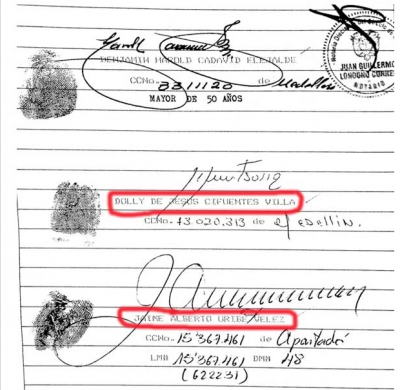 BENJAMIN HAROLD CADAVID ELEJALDE
CCNo. 8311120 de Medellín
MAYOR DE 50 AÑOS
JUAN GUILLERMO
NOTARIO
DOLLY DE JESUS CIFUENTES VILLA
CCNo. 43.020.313 de Medellín.
JAIME ALBERTO URIBE VELEZ
CCNo. 15'367.461 de Apartadó
LMNo 15'367.461 DMN 48
(622231)